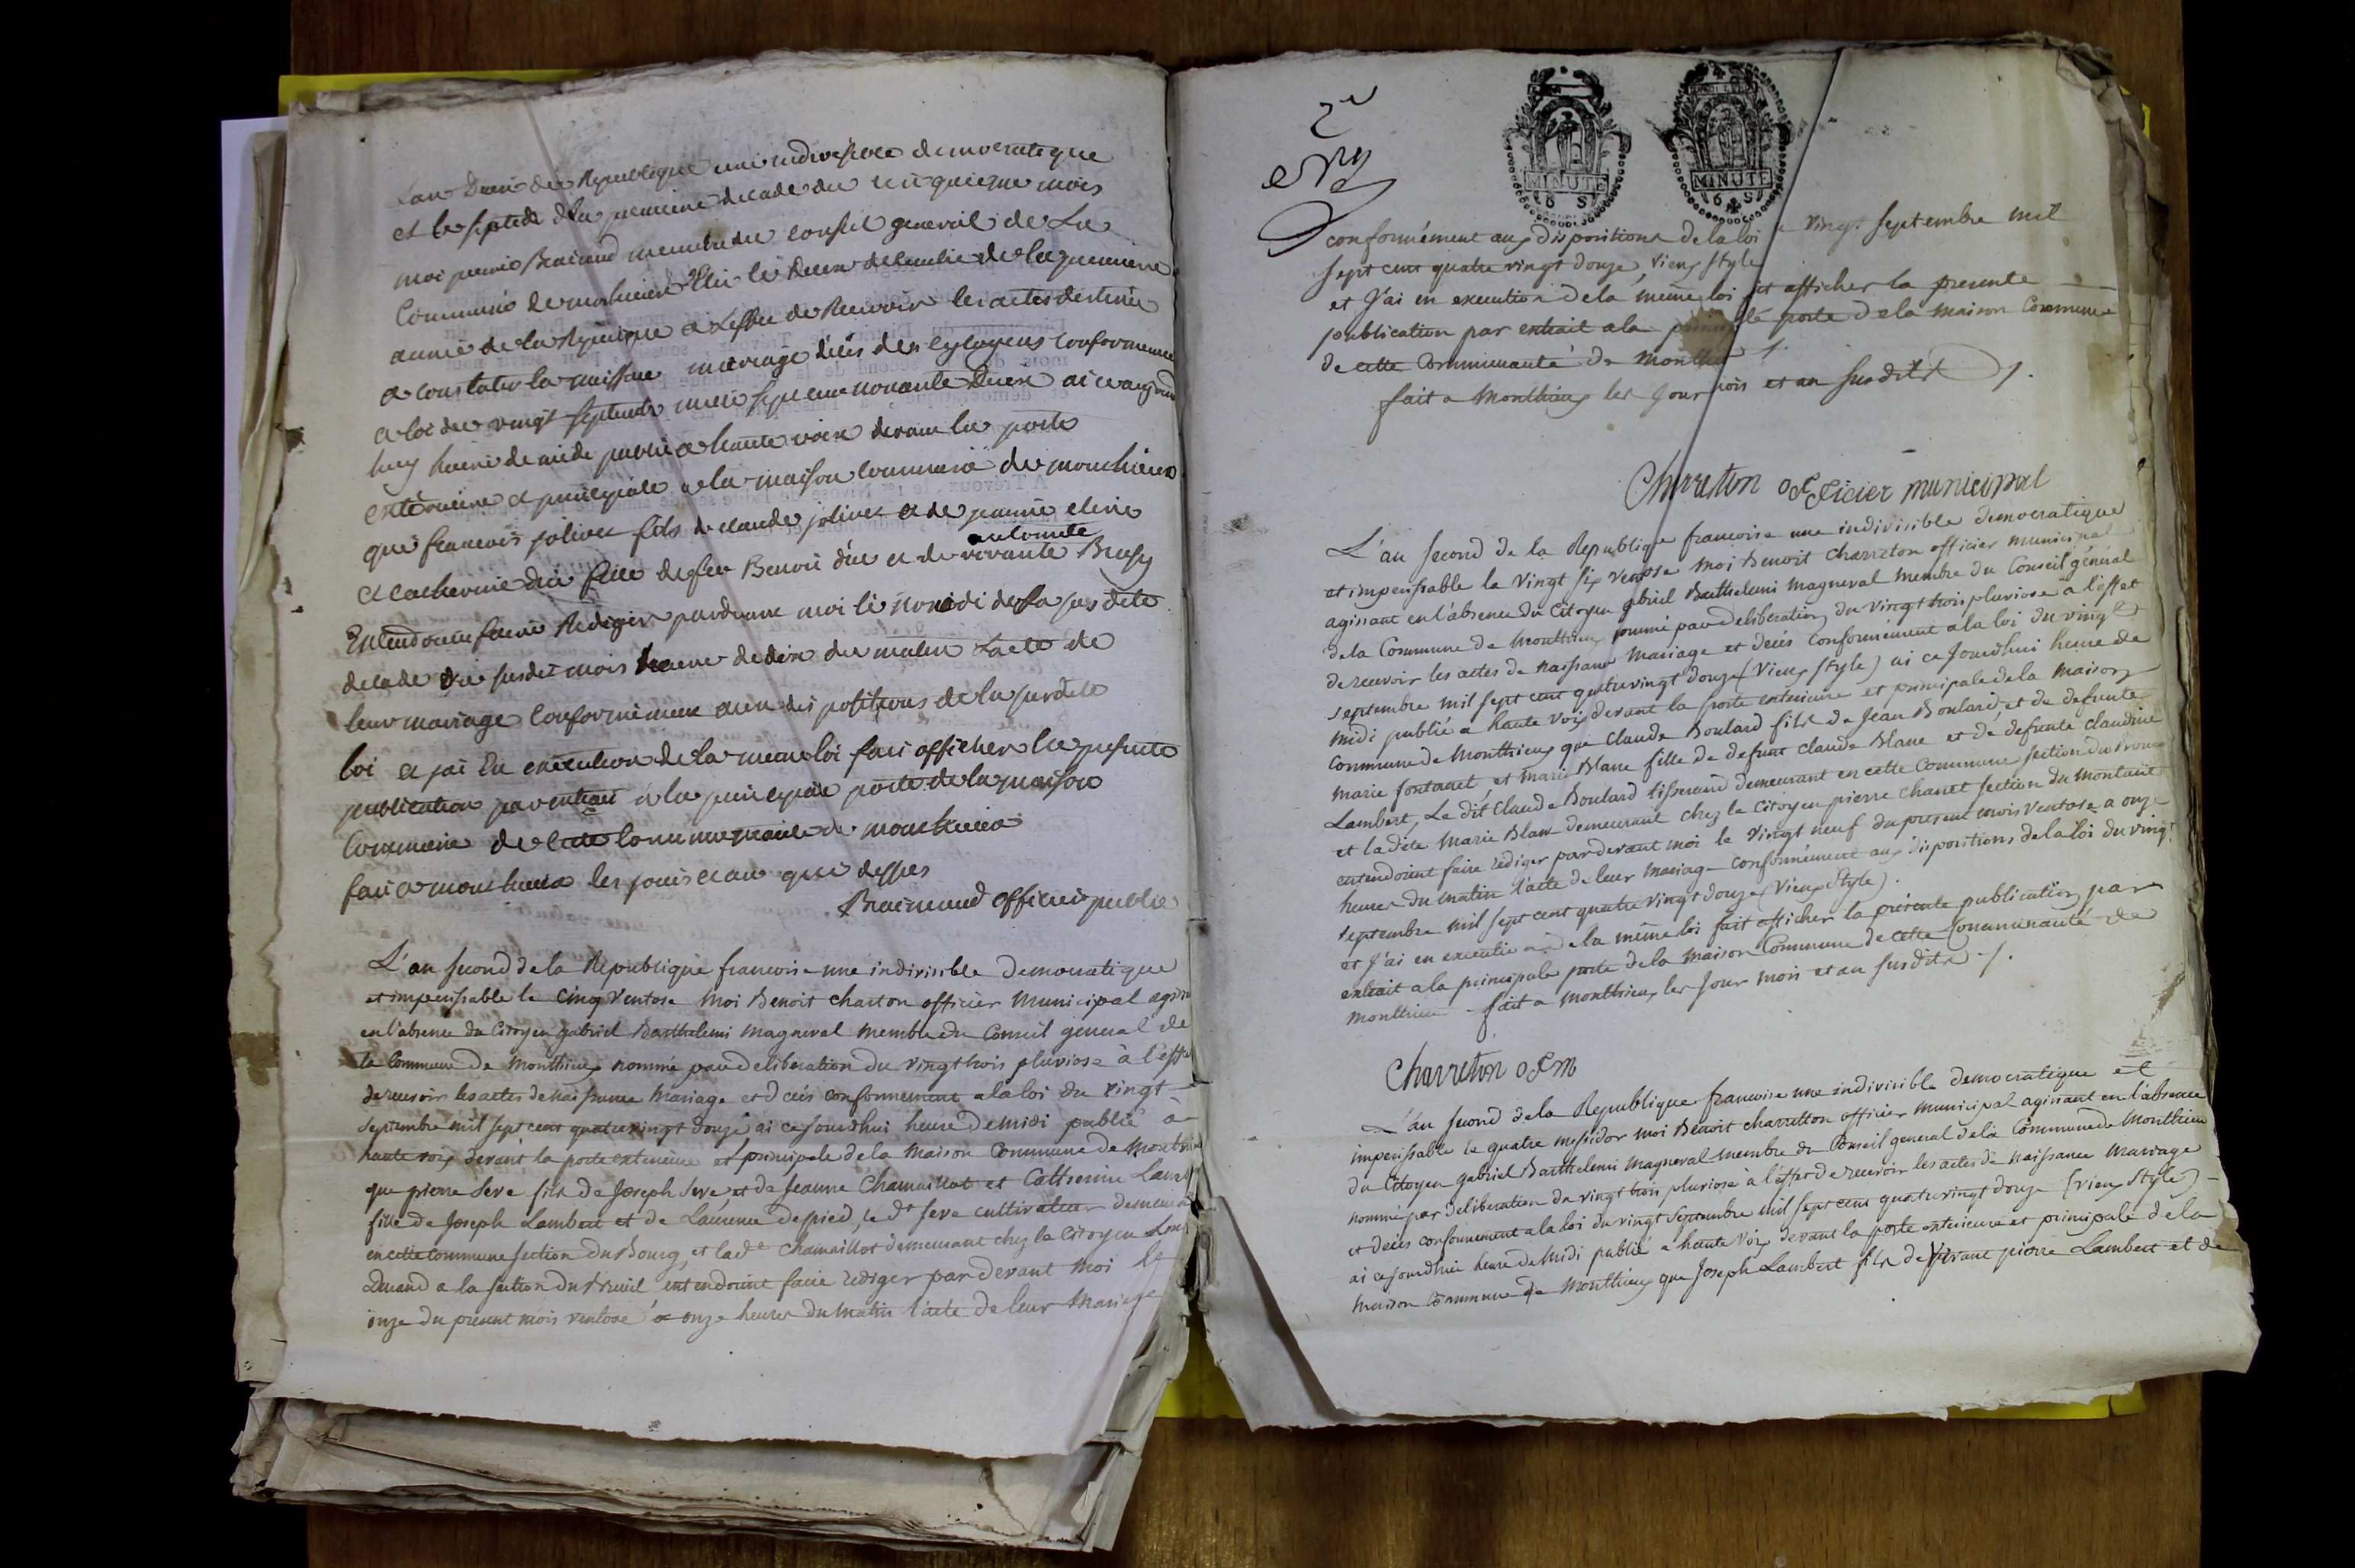 et le septedi de la premiere decade du cinquieme mois
moi pierre Brainaud membre du conseil general de La
Commune de
annee de la republique a Leffet de Recevoir les actes destinés
a constater la naissance mariage décès des citoyens conformement
a loi du vingt septembre mille sept cent nonante deux ai
heure de midi publié a haute voix devant la porte
exterieure et principale de la maison commune de monthieux
que francois jolivet fils de claude jolivet et de jeanne
et catherine fille de feu Benoit et de vivante
Entendoient faire Rediger pardevant moi le nonidi de la susdite
decade du susdit mois heure de dix du matin Lacte de
leur mariage Conformement aux dispositions de la susdite
loi et jai En execution de la meme loi fait afficher la presente
publication par extrait a la principale porte de la maison
Commune de cette communauté de monthieux
fait a monthieux les jours et an que dessus
Brainaud officier public
L'an second de la Republique francoise une indivisible democratique
et imperissable le cinq Ventose Moi Benoit charton officier Municipal
en l'absence du Citoyen gabriel Barthelemi Magneval membre du Conseil general de
la Commune de Monthieux nommé par deliberation du vingt trois pluviose à l'effet
de recevoir les actes de naissance Mariage et décés conformement a la loi du vingt
septembre mil sept cent quatrevingt douze ai cejourdhui heure de midi publié à
haute voix devant la porte exterieure et principale de la Maison Commune de
que pierre Seve fils de Joseph Seve et de Jeanne Chamaillot et Catherine
fille de Joseph Lambert et de Laurence depied, le dt Seve cultivateur
en cette commune section du Bourg, et lade Chamaillot demeurant chez le Citoyen
Durand a la section du entendoient faire rediger par devant Moi le
onze du present mois ventose à onze heures du matin l'acte de leur Mariage
2e
conformément aux dispositions de la loi vingt septembre mil
MINUTE
6 S
MINUTE
6 S
sept cent quatre vingt douze, vieux style
et J'ai en execution de la même loi fait afficher la presente
publication par extrait a la porte de la maison Commune
de cette Communauté de
fait a Monthieux les Jour mois et an susdits
Charreton officier municipal
L'an second de la Republique francoise une indivisible democratique
et imperissable le vingt six ventose moi Benoit charreton officier municipal
agissant en l'absence du Citoyen gabriel Barthelemi Magneval membre du Conseil général
de la Commune de Monthieux nommé par deliberation du vingt trois pluviose a l'effet
de recevoir les actes de naissance Mariage et décés conformément a la loi du vingt
septembre mil sept cent quatrevingt douze (vieux style) ai ce Jourdhui heure de
midi publié a haute voix devant la porte exterieure et principale de la maison
commune de Monthieux que claude Boulard fils de Jean Boulard et de defunte
Marie fontanet, et marie Blanc fille de defunt claude Blanc et de defunte claudine
Lambert, Le dit claude Boulard tisserand demeurant en cette Commune section du
et ladite Marie Blanc demeurant chez le Citoyen pierre section du
entendoient faire rediger pardevant moi le vingt neuf du present mois ventose a onze
heures du matin l'acte de leur mariage conformément aux dispositions de la loi du vingt
septembre mil sept cent quatre vingt douze (Vieux Style).
et J'ai en execution de la même loi fait afficher la présente publication par
extrait a la principale porte de la maison Commune de cette Communauté de
Monthieux fait a Monthieux les Jour mois et an susdits
Charreton ofm
L'an second de la Republique francoise une indivisible democratique et
imperissable le quatre messidor moi Benoit charretton officier municipal agissant en l'absence
du Citoyen gabriel Barthelemi Magneval membre du Conseil general de la Commune de Monthieux
nommé par deliberation du vingt trois pluviose à l'effet de recevoir les actes de naissance mariage
et décés conformement a la loi du vingt septembre mil sept cent quatrevingt douze (vieux style)
ai cejourdhui heure de midi publié a haute voix devant la porte exterieure et principale de la
maison Commune de Monthieux que Joseph Lambert fils de vivant pierre Lambert et de